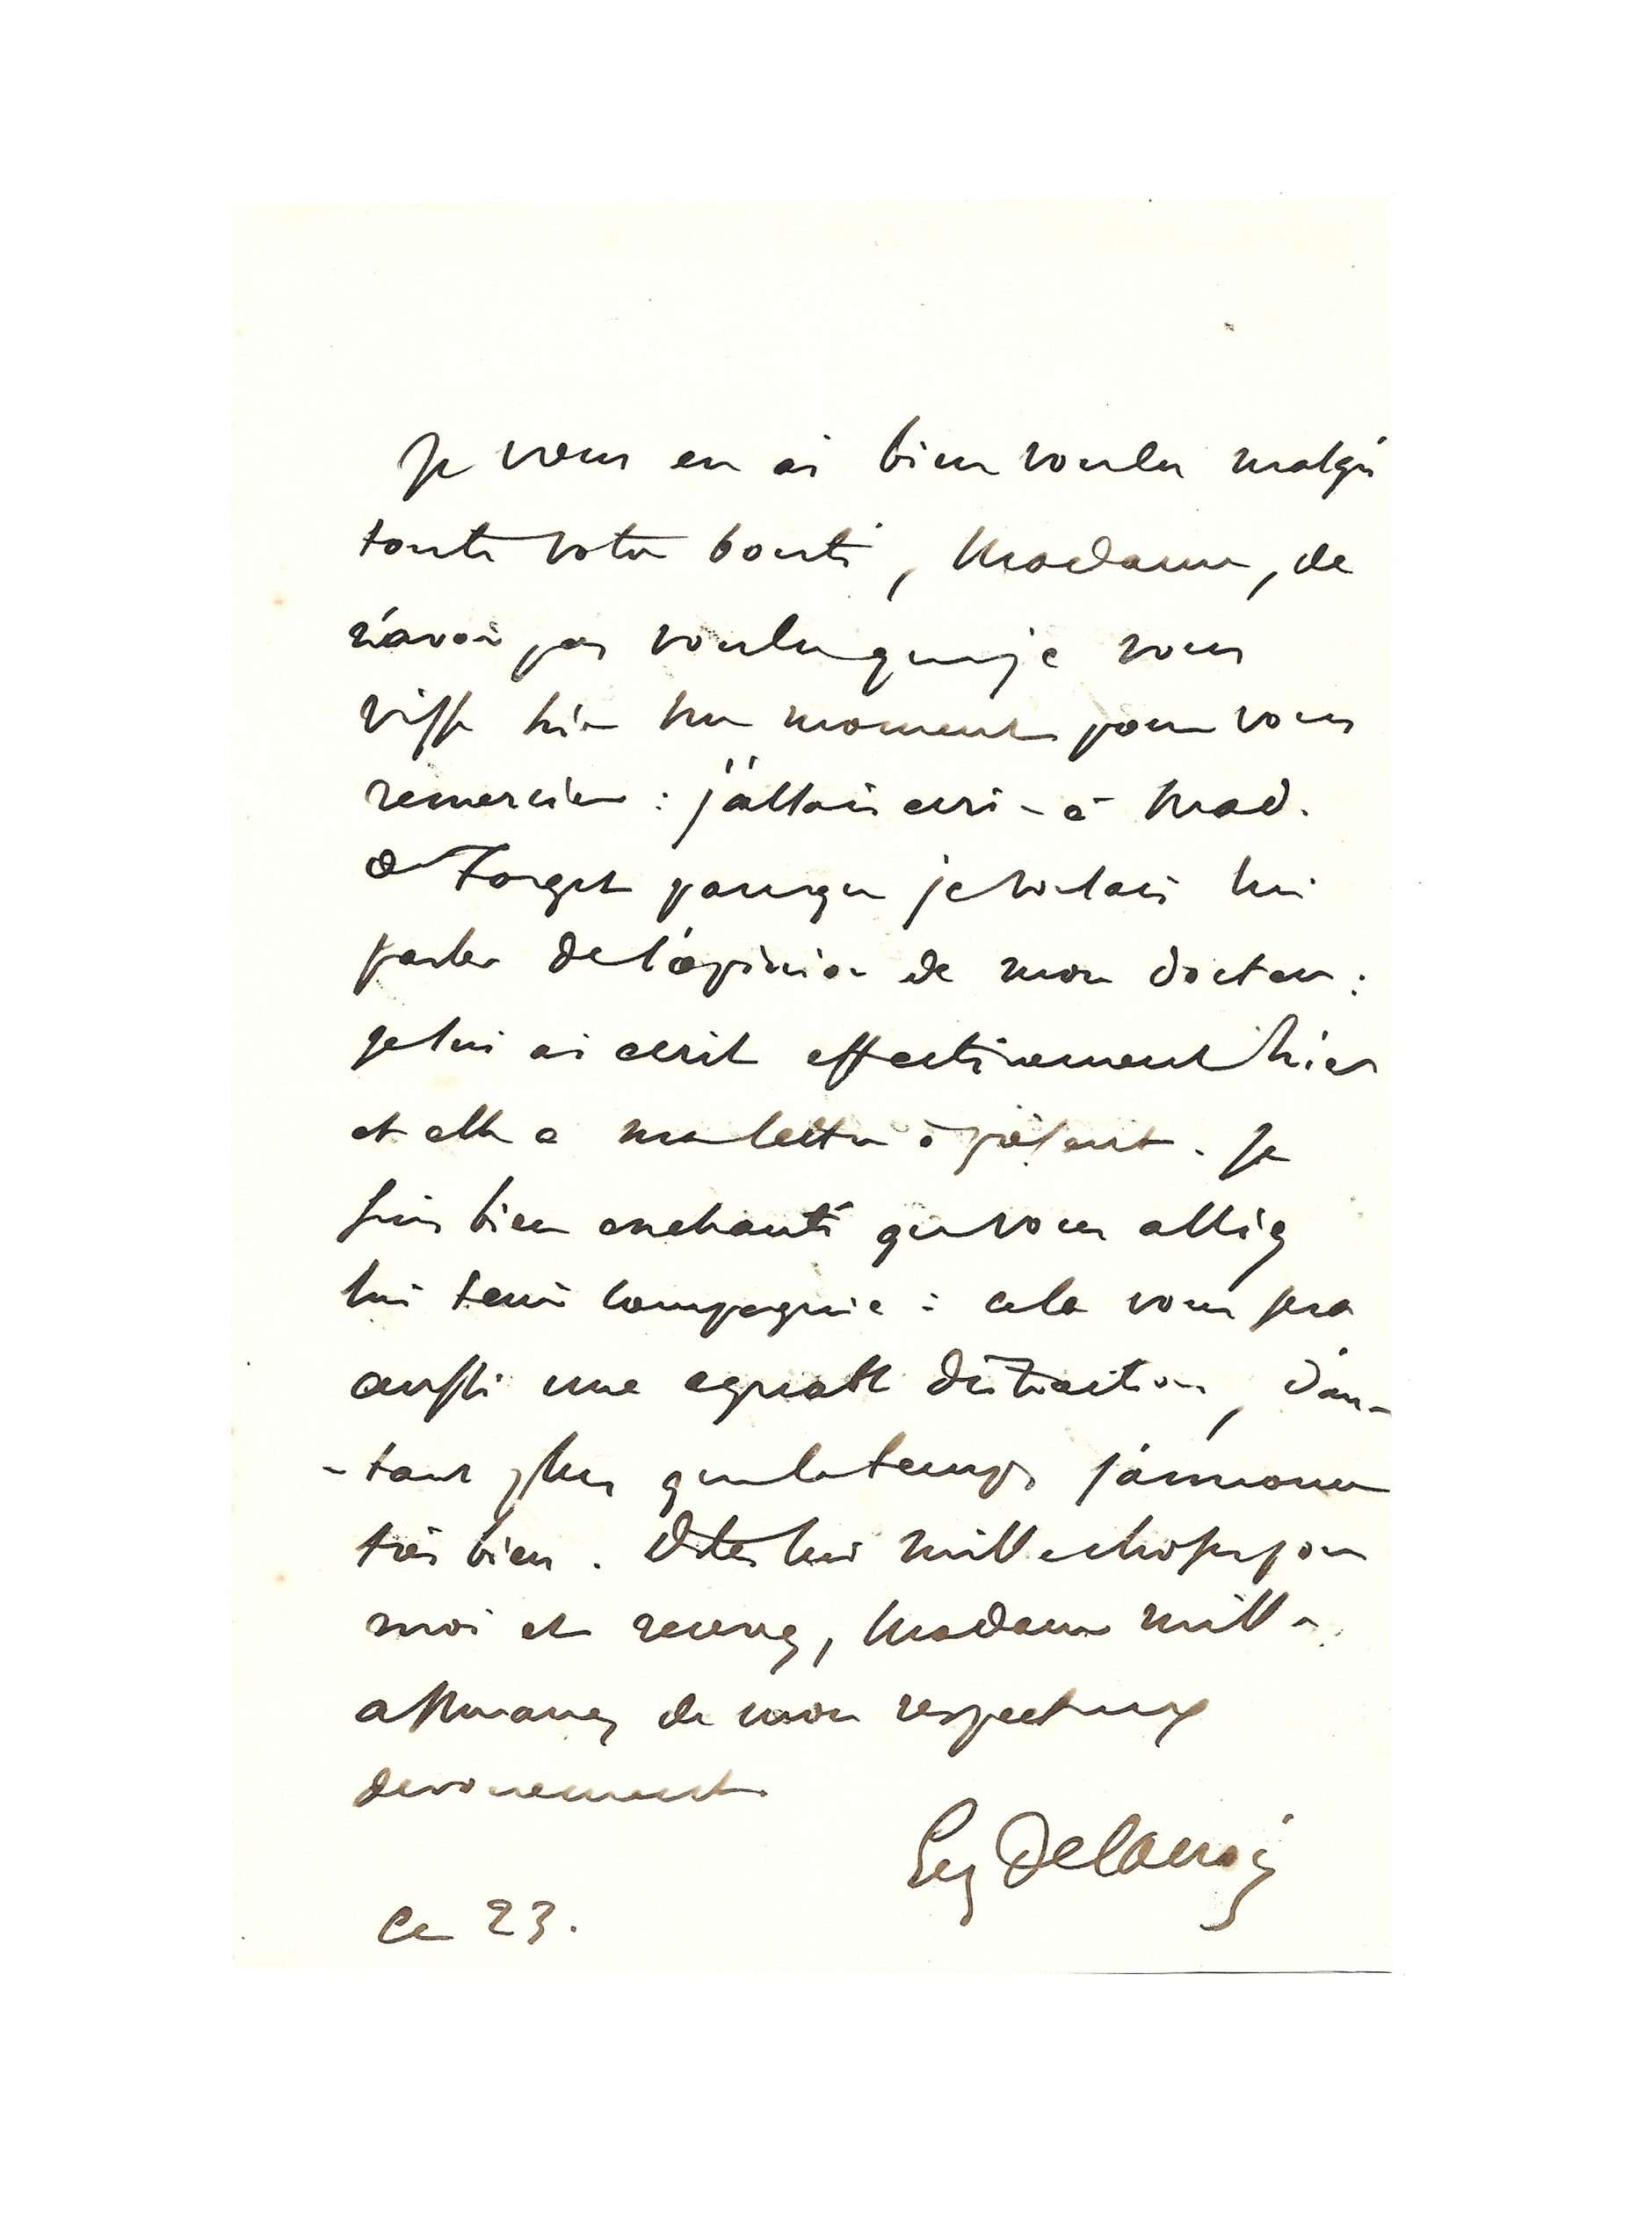 Je vous en ai bien voulu malgré
toute votre bonté, Madame, de
n'avoir pas voulu que je vous
visse hier un moment pour vous
remercier : j'allais ecrire à Mad.
de Forget parce que je voulais lui
parler de l'opinion de mon docteur :
je lui ai ecrit effectivement hier
et elle a ma lettre à présent. Je
suis bien enchanté que vous alliez
lui tenir compagnie : cela vous sera
aussi une agreable distraction, d'au-
-tant plus que le temps s'annonce
très bien. Dites lui mille choses pour
moi et recevez, Madame mille
assurances de mon respectueux
devouement
Eug Delacroix
Ce 23.